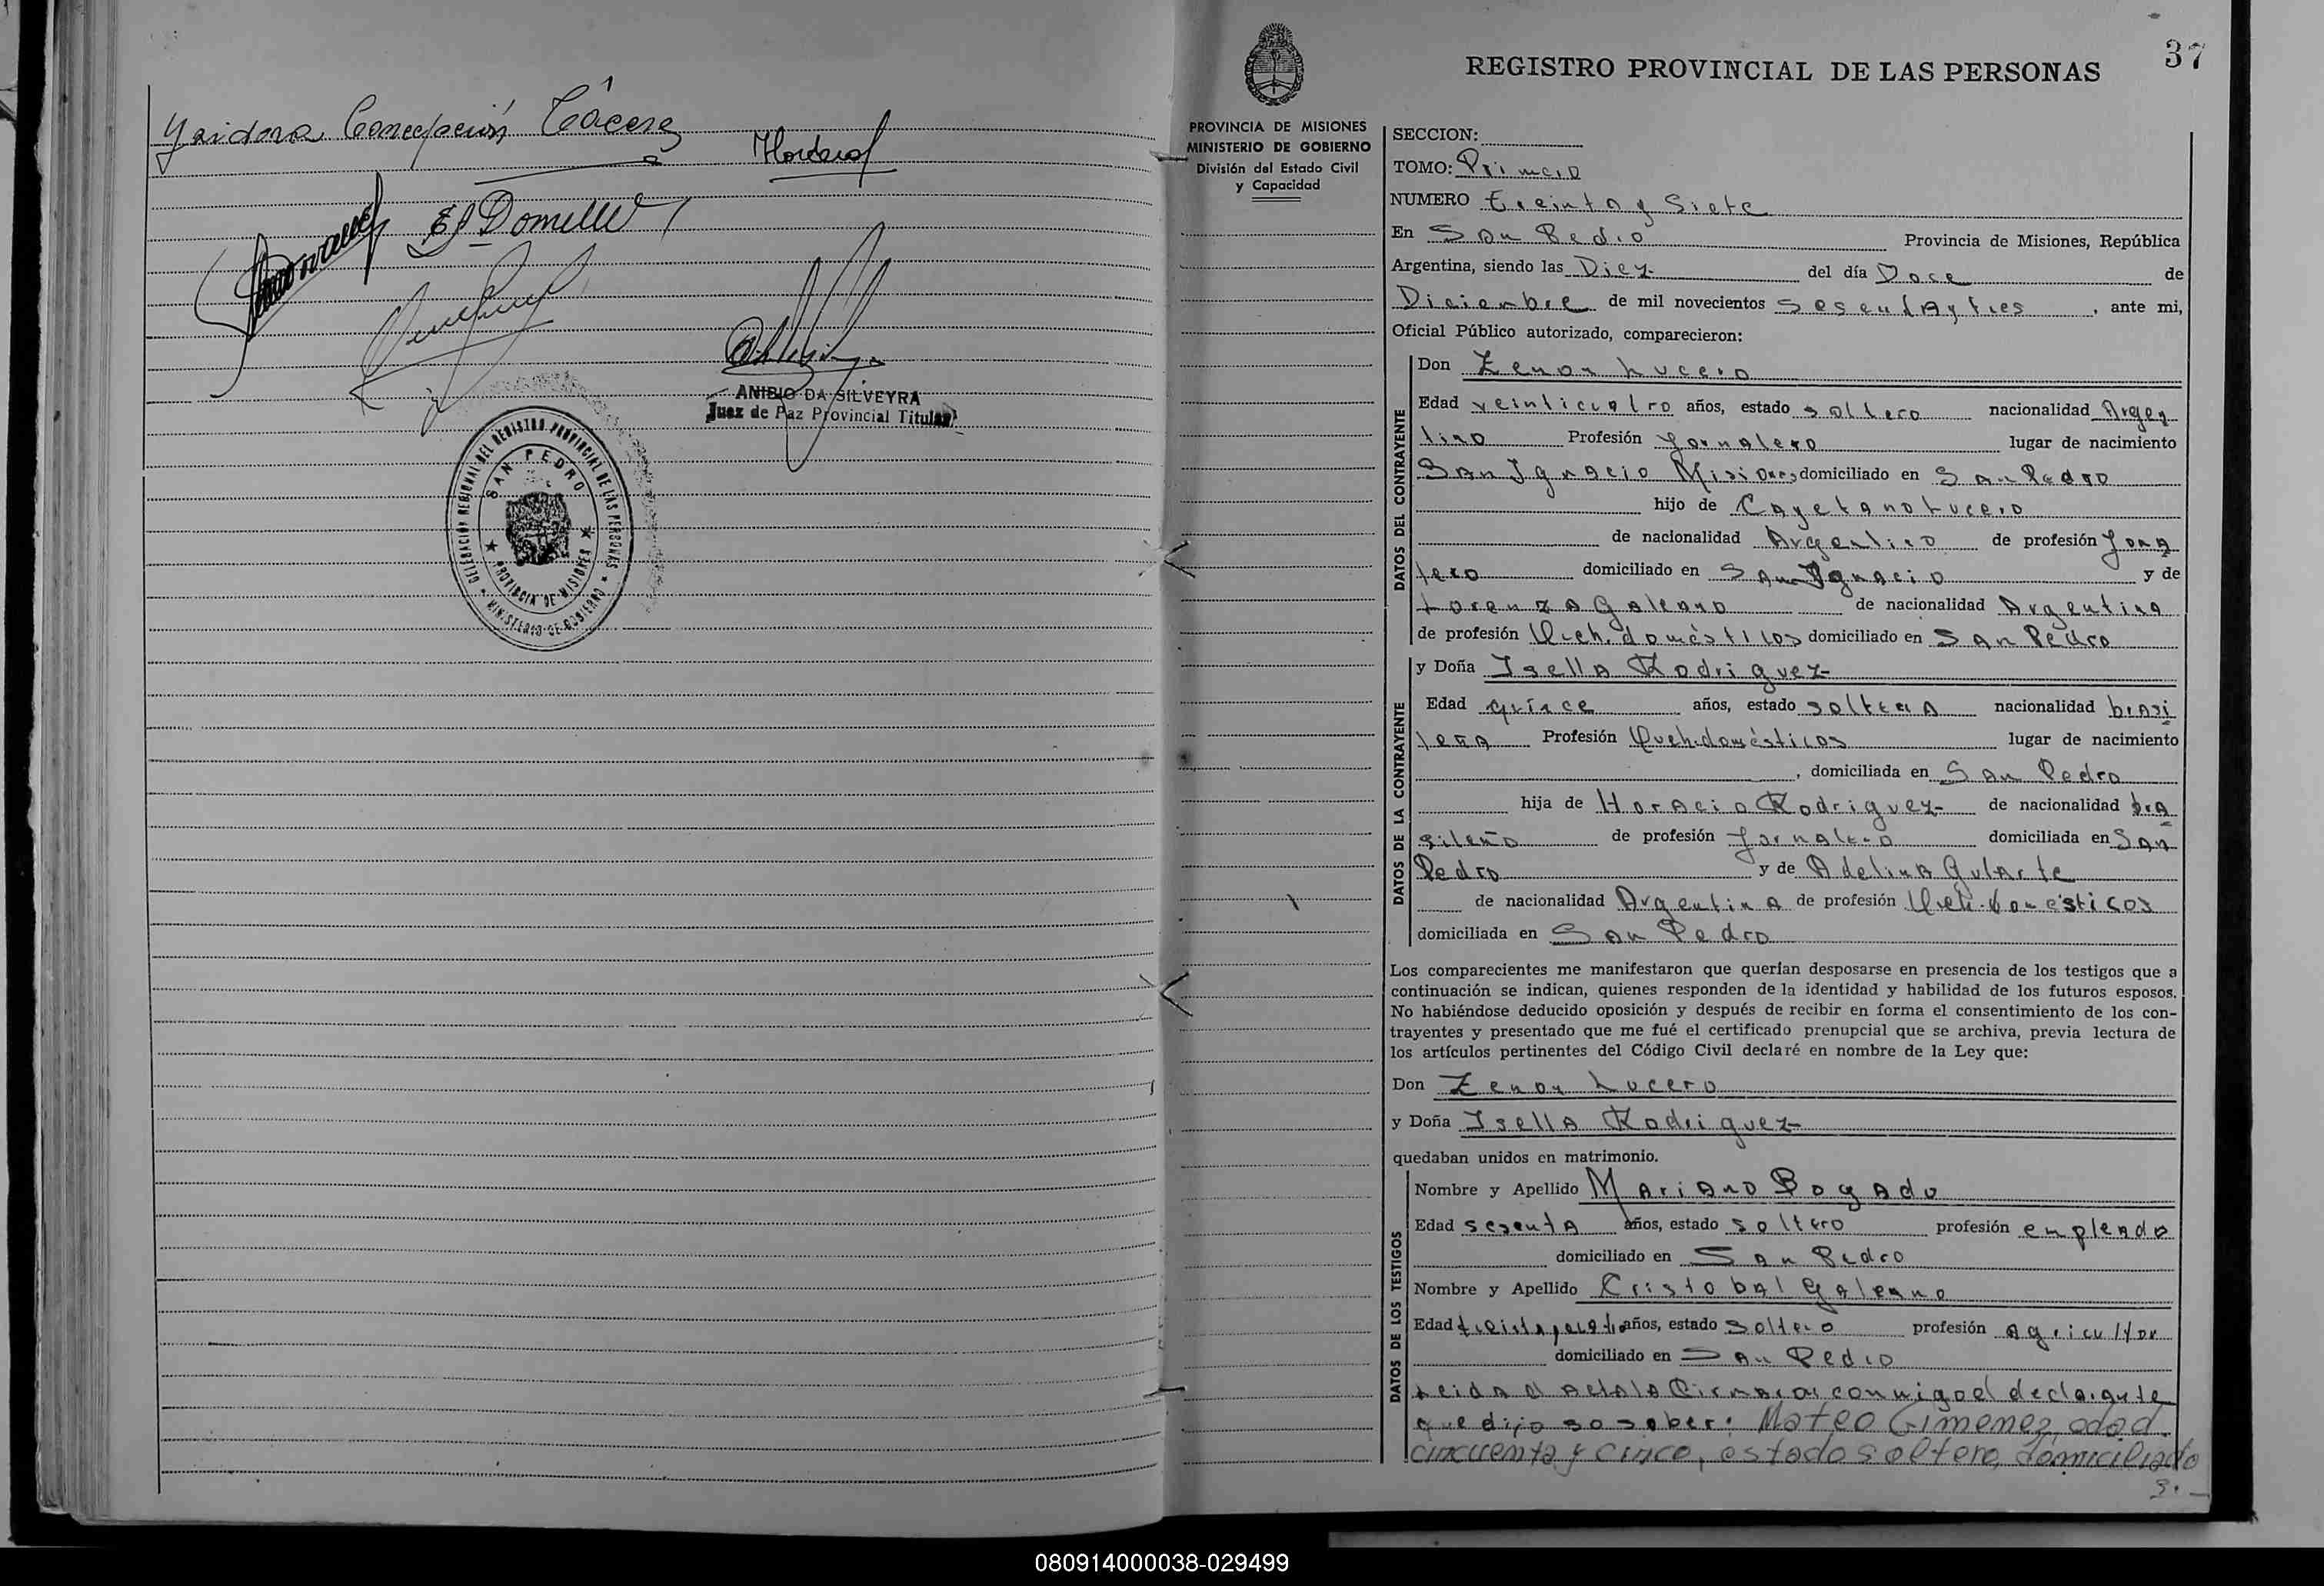 Ysidora Concepción Cáceres
ANIBIO DA SILVEYRA
Juez de Paz Provincial Titular
DELEGACIÓN REGIONAL DEL REGISTRO PROVINCIAL DE LAS PERSONAS
SAN PEDRO
PROVINCIA DE MISIONES
MINISTERIO DE GOBIERNO
37
REGISTRO PROVINCIAL DE LAS PERSONAS
PROVINCIA DE MISIONES
MINISTERIO DE GOBIERNO
División del Estado Civil
y Capacidad
SECCION:
TOMO: Primero
NUMERO treinta y Siete
En San Pedro Provincia de Misiones, República
Argentina, siendo las Diez del día Doce de
Diciembre de mil novecientos sesenta y tres, ante mi,
Oficial Público autorizado, comparecieron:
DATOS DEL CONTRAYENTE
Don Zenon Lucero
Edad veinticuatro años, estado soltero nacionalidad Argen
tino Profesión Jornalero lugar de nacimiento
San Ignacio Misiones domiciliado en San Pedro
hijo de Cayetano Lucero
de nacionalidad Argentino de profesión Jorna
lero domiciliado en San Ignacio y de
Lorenza Galeano de nacionalidad Argentina
de profesión Queh. domésticos domiciliado en San Pedro
DATOS DE LA CONTRAYENTE
y Doña Isella Rodriguez
Edad quince años, estado soltera nacionalidad brasi
leña Profesión Queh. domésticos lugar de nacimiento
, domiciliada en San Pedro
hija de Horacio Rodriguez de nacionalidad bra
sileño de profesión Jornalero domiciliada en San
Pedro y de Adelina Gularte
de nacionalidad Argentina de profesión Queh. domésticos
domiciliada en San Pedro
Los comparecientes me manifestaron que querían desposarse en presencia de los testigos que a
continuación se indican, quienes responden de la identidad y habilidad de los futuros esposos.
No habiéndose deducido oposición y después de recibir en forma el consentimiento de los con-
trayentes y presentado que me fué el certificado prenupcial que se archiva, previa lectura de
los artículos pertinentes del Código Civil declaré en nombre de la Ley que:
Don Zenon Lucero
y Doña Isella Rodriguez
quedaban unidos en matrimonio.
DATOS DE LOS TESTIGOS
Nombre y Apellido Mariano Bogado
Edad sesenta años, estado soltero profesión empleado
domiciliado en San Pedro
Nombre y Apellido Cristobal Galeano
Edad treinta años, estado soltero profesión agricultor
domiciliado en San Pedro
Leida el acta la firmaron conmigo el declarante
que dijo saber: Mateo Gimenez, edad
cincuenta y cinco, estado soltero, domiciliado
080914000038-029499